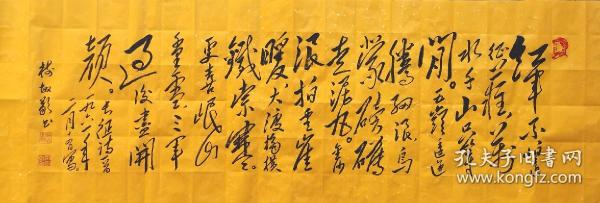 红军不怕
远征难万
水千山只等
闲。五岭逶迤
腾细浪乌
蒙磅礴
走泥丸。金沙
浪拍云崖
暖大渡桥横
铁索寒。
更喜岷山
千里雪三军
过后尽开
颜。长征诗一首
一九六一年
二月
敬书
孔夫子旧书网
www.kongfz.com